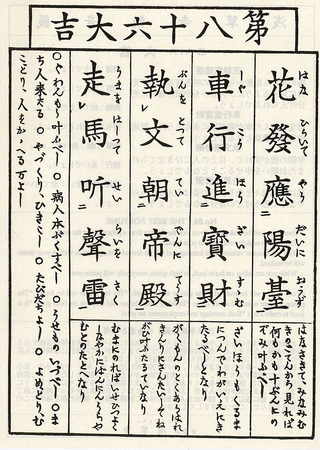 第八十六大吉
花發應陽臺
はな ひらいて やう だいに おうず
車行進寶財
しや こう ほう ざい すすむ
執文朝帝殿
ぶんを とつて てい でんに てうす
走馬听聲雷
うまを はしつて せい らいを きく
はなさきて、みなみむ
きのごてんから見れば
何もかも十ぶんにの
ぞみ叶ふべし
ざいほうもくるま
につんでわがいえにき
たるべしとなり
がくもんのとくあらはれ
きんりにさんたいしてね
がひ叶ふたるていなり
むまにのればいせひつよく
むとのたとへなり
○ぐわんもう叶ふべし ○病人本ぷくすべし ○うせものいづべし ○ま
ち人来たる ○やづくりひきこし ○たびだちよし ○よめどり、む
こどり、人をかゝへる万よし